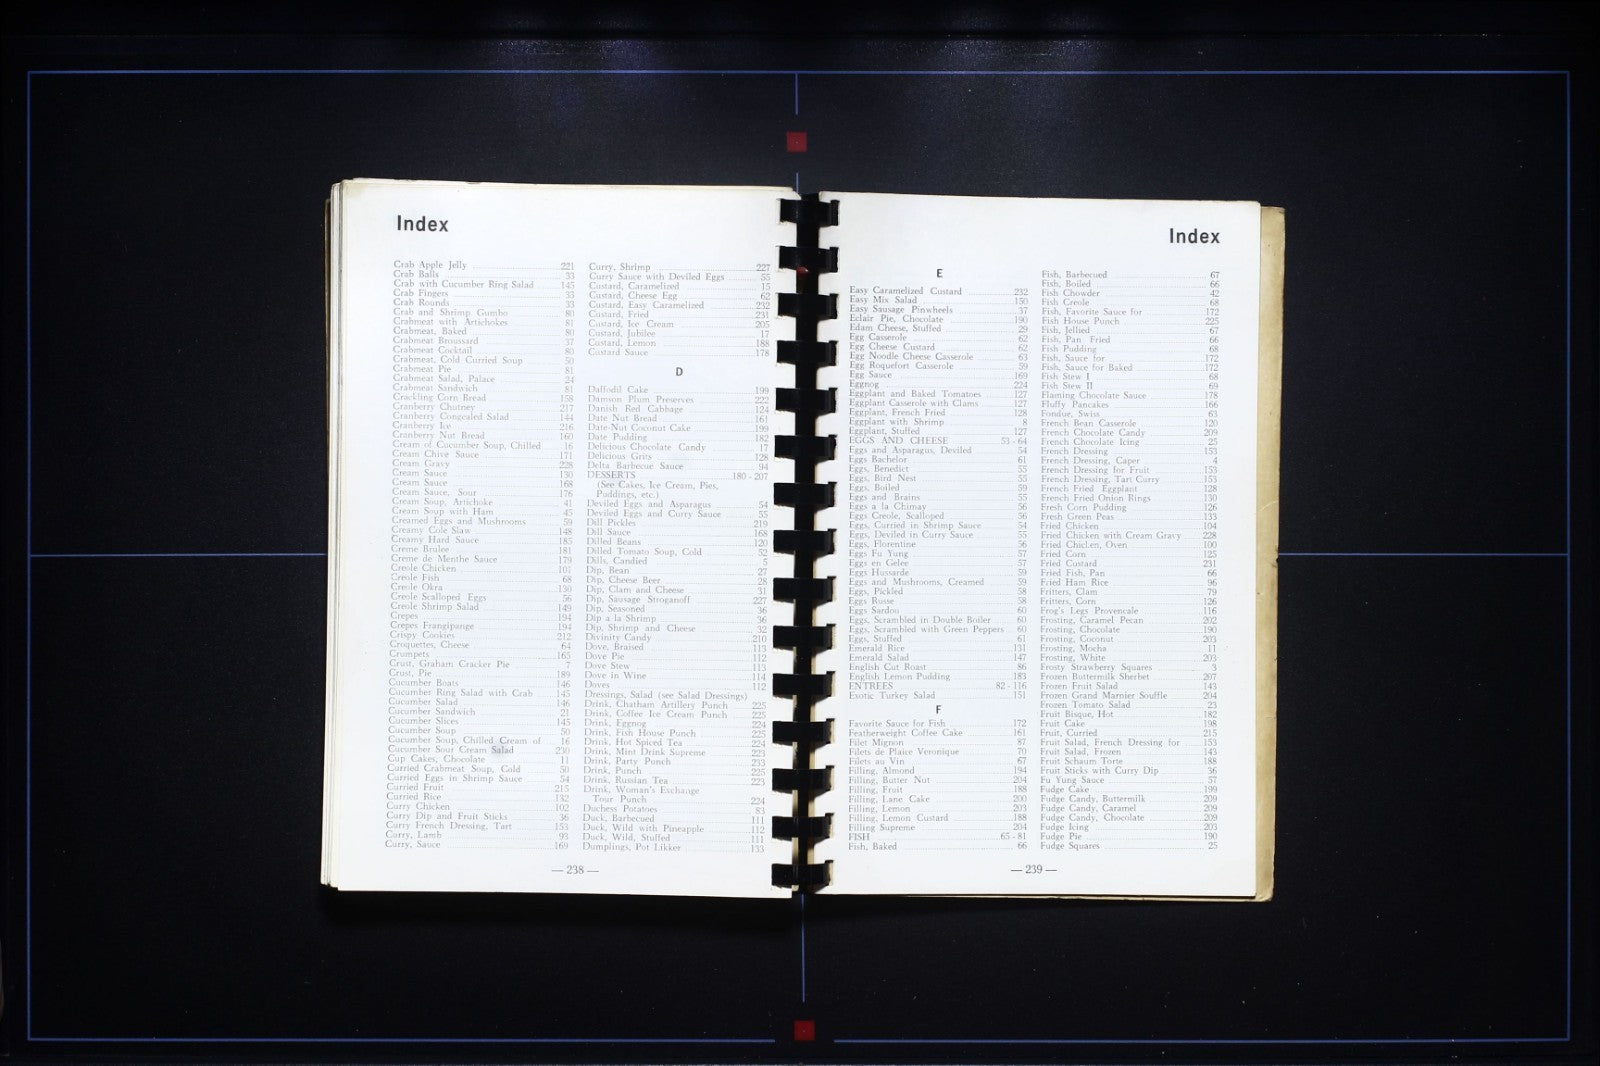 Index
Crab Apple Jelly 221
Crab Balls 33
Crab with Cucumber Ring Salad 145
Crab Fingers 33
Crab Rounds 33
Crab and Shrimp Gumbo 80
Crabmeat with Artichokes 81
Crabmeat, Baked 80
Crabmeat Broussard 37
Crabmeat Cocktail 80
Crabmeat, Cold Curried Soup 50
Crabmeat Pie 81
Crabmeat Salad, Palace 24
Crabmeat Sandwich 81
Crackling Corn Bread 158
Cranberry Chutney 217
Cranberry Congealed Salad 144
Cranberry Ice 216
Cranberry Nut Bread 160
Cream of Cucumber Soup, Chilled 16
Cream Chive Sauce 171
Cream Gravy 228
Cream Sauce 130
Cream Sauce 168
Cream Sauce, Sour 176
Cream Soup, Artichoke 41
Cream Soup with Ham 45
Creamed Eggs and Mushrooms 59
Creamy Cole Slaw 148
Creamy Hard Sauce 185
Creme Brulee 181
Creme de Menthe Sauce 179
Creole Chicken 101
Creole Fish 68
Creole Okra 130
Creole Scalloped Eggs 56
Creole Shrimp Salad 149
Crepes 194
Crepes Frangipange 194
Crispy Cookies 212
Croquettes, Cheese 64
Crumpets 165
Crust, Graham Cracker Pie 7
Crust, Pie 189
Cucumber Boats 146
Cucumber Ring Salad with Crab 145
Cucumber Salad 146
Cucumber Sandwich 21
Cucumber Slices 145
Cucumber Soup 50
Cucumber Soup, Chilled Cream of 16
Cucumber Sour Cream Salad 230
Cup Cakes, Chocolate 11
Curried Crabmeat Soup, Cold 50
Curried Eggs in Shrimp Sauce 54
Curried Fruit 215
Curried Rice 132
Curry Chicken 102
Curry Dip and Fruit Sticks 36
Curry French Dressing, Tart 153
Curry, Lamb 93
Curry, Sauce 169
Curry, Shrimp 227
Curry Sauce with Deviled Eggs 55
Custard, Caramelized 15
Custard, Cheese Egg 62
Custard, Easy Caramelized 232
Custard, Fried 231
Custard, Ice Cream 205
Custard, Jubilee 17
Custard, Lemon 188
Custard Sauce 178
D
Daffodil Cake 199
Damson Plum Preserves 222
Danish Red Cabbage 124
Date Nut Bread 161
Date-Nut Coconut Cake 199
Date Pudding 182
Delicious Chocolate Candy 17
Delicious Grits 128
Delta Barbecue Sauce 94
DESSERTS 180 - 207
(See Cakes, Ice Cream, Pies,
Puddings, etc.)
Deviled Eggs and Asparagus 54
Deviled Eggs and Curry Sauce 55
Dill Pickles 219
Dill Sauce 168
Dilled Beans 120
Dilled Tomato Soup, Cold 52
Dills, Candied 5
Dip, Bean 27
Dip, Cheese Beer 28
Dip, Clam and Cheese 31
Dip, Sausage Stroganoff 227
Dip, Seasoned 36
Dip a la Shrimp 36
Dip, Shrimp and Cheese 32
Divinity Candy 210
Dove, Braised 113
Dove Pie 112
Dove Stew 113
Dove in Wine 114
Doves 112
Dressings, Salad (see Salad Dressings)
Drink, Chatham Artillery Punch 225
Drink, Coffee Ice Cream Punch 225
Drink, Eggnog 224
Drink, Fish House Punch 225
Drink, Hot Spiced Tea 224
Drink, Mint Drink Supreme 223
Drink, Party Punch 233
Drink, Punch 225
Drink, Russian Tea 223
Drink, Woman's Exchange
Tour Punch 224
Duchess Potatoes 83
Duck, Barbecued 111
Duck, Wild with Pineapple 112
Duck, Wild, Stuffed 111
Dumplings, Pot Likker 133
— 238 —
Index
E
Easy Caramelized Custard 232
Easy Mix Salad 150
Easy Sausage Pinwheels 37
Eclair Pie, Chocolate 190
Edam Cheese, Stuffed 29
Egg Casserole 62
Egg Cheese Custard 62
Egg Noodle Cheese Casserole 63
Egg Roquefort Casserole 59
Egg Sauce 169
Eggnog 224
Eggplant and Baked Tomatoes 127
Eggplant Casserole with Clams 127
Eggplant, French Fried 128
Eggplant with Shrimp 8
Eggplant, Stuffed 127
EGGS AND CHEESE 53 - 64
Eggs and Asparagus, Deviled 54
Eggs Bachelor 61
Eggs, Benedict 55
Eggs, Bird Nest 55
Eggs, Boiled 59
Eggs and Brains 55
Eggs a la Chimay 56
Eggs Creole, Scalloped 56
Eggs, Curried in Shrimp Sauce 54
Eggs, Deviled in Curry Sauce 55
Eggs, Florentine 56
Eggs Fu Yung 57
Eggs en Gelee 57
Eggs Hussarde 59
Eggs and Mushrooms, Creamed 59
Eggs, Pickled 58
Eggs Russe 58
Eggs Sardou 60
Eggs, Scrambled in Double Boiler 60
Eggs, Scrambled with Green Peppers 60
Eggs, Stuffed 61
Emerald Rice 131
Emerald Salad 147
English Cut Roast 86
English Lemon Pudding 183
ENTREES 82 - 116
Exotic Turkey Salad 151
F
Favorite Sauce for Fish 172
Featherweight Coffee Cake 161
Filet Mignon 87
Filets de Plaice Veronique 70
Filets au Vin 67
Filling, Almond 194
Filling, Butter Nut 204
Filling, Fruit 188
Filling, Lane Cake 200
Filling, Lemon 203
Filling, Lemon Custard 188
Filling Supreme 204
FISH 65 - 81
Fish, Baked 66
Fish, Barbecued 67
Fish, Boiled 66
Fish Chowder 42
Fish Creole 68
Fish, Favorite Sauce for 172
Fish House Punch 225
Fish, Jellied 67
Fish, Pan Fried 66
Fish Pudding 68
Fish, Sauce for 172
Fish, Sauce for Baked 172
Fish Stew I 68
Fish Stew II 69
Flaming Chocolate Sauce 178
Fluffy Pancakes 166
Fondue, Swiss 63
French Bean Casserole 120
French Chocolate Candy 209
French Chocolate Icing 25
French Dressing 153
French Dressing, Caper 4
French Dressing for Fruit 153
French Dressing, Tart Curry 153
French Fried Eggplant 128
French Fried Onion Rings 130
Fresh Corn Pudding 126
Fresh Green Peas 133
Fried Chicken 104
Fried Chicken with Cream Gravy 228
Fried Chicken, Oven 100
Fried Corn 125
Fried Custard 231
Fried Fish, Pan 66
Fried Ham Rice 96
Fritters, Clam 79
Fritters, Corn 126
Frog's Legs Provencale 116
Frosting, Caramel Pecan 202
Frosting, Chocolate 190
Frosting, Coconut 203
Frosting, Mocha 11
Frosting, White 203
Frosty Strawberry Squares 3
Frozen Buttermilk Sherbet 207
Frozen Fruit Salad 143
Frozen Grand Marnier Souffle 204
Frozen Tomato Salad 23
Fruit Bisque, Hot 182
Fruit Cake 198
Fruit, Curried 215
Fruit Salad, French Dressing for 153
Fruit Salad, Frozen 143
Fruit Schaum Torte 188
Fruit Sticks with Curry Dip 36
Fu Yung Sauce 57
Fudge Cake 199
Fudge Candy, Buttermilk 209
Fudge Candy, Caramel 209
Fudge Candy, Chocolate 209
Fudge Icing 203
Fudge Pie 190
Fudge Squares 25
— 239 —